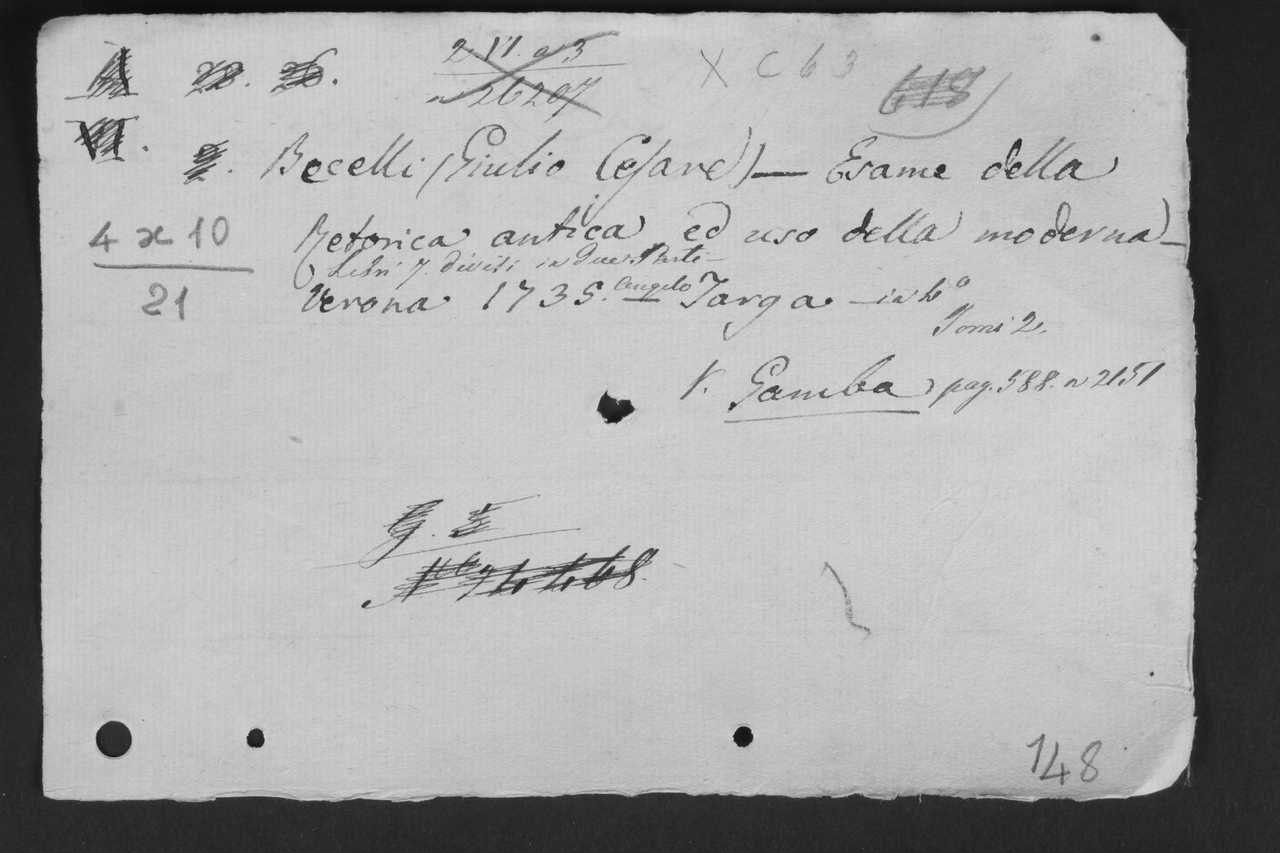 A 28. 26. 2 VI. a 3 X C 63 618
n 26207
VI. 2. Becelli (Giulio Cesare) — Esame della
4 x 10 Retorica antica ed uso della moderna —
Libri 7. divisi in due Parti —
21 Verona 1735. Angelo Targa — in 4°
Tomi 2.
V. Gamba pag. 588. n 2151
G. 5
N° 74468.
148